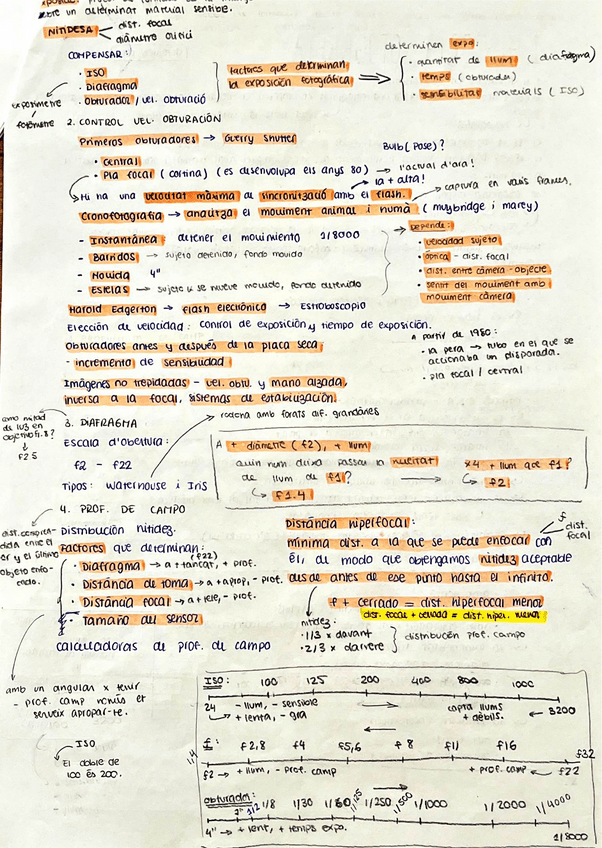 bre un determinat material sensible.
NITIDESA
dist. focal
diàmetre òptic
COMPENSAR:
· ISO
· Diafragma
· Obturador / vel. obturació
exposímetre
fotòmetre
factores que determinan
la exposición fotográfica
determinen expo:
· quantitat de llum (diafragma)
· temps (obturador)
· sensibilitat materials (ISO)
2. CONTROL VEL. OBTURACIÓN
Primeros obturadores → Guerry shutter
· Central
Bulb (Pose)?
· Pla focal (cortina) (es desenvolupa els anys 80) → l'actual d'ara!
la + alta!
Hi ha una velocitat màxima de sincronització amb el flash.
captura en varis frames.
Cronofotografia → analitza el moviment animal i humà (muybridge i marey)
- Instantánea: detener el movimiento 1/8000
- Barridos → sujeto detenido, fondo movido
- Movida 4"
- Estelas → sujeto k se mueve movido, fondo detenido
Depende:
· velocidad sujeto
· óptica - dist. focal
· dist. entre càmera - objecte
· sentit del moviment amb
moviment càmera
Harold Edgerton → flash electrónico → Estroboscopio
Elección de velocidad: control de exposición y tiempo de exposición.
Obturadores antes y después de la placa seca
- incremento de sensibilidad
A partir de 1980:
· la pera → tubo en el que se
accionaba un disparado.
· pla focal / central
Imágenes no trepidadas - vel. obtu. y mano alzada,
inversa a la focal, sistemas de estabilización.
3. DIAFRAGMA
rodona amb forats dif. grandàries
Escala d'obertura:
f2 - f22
Tipos: Waterhouse i Iris
como mitad
de luz en
objetivo f1.8?
f2.5
A + diàmetre (f2), + llum
Quin num deixa passar la meitat
de llum de f1?
f1.4
x4 + llum que f1?
f2
4. PROF. DE CAMPO
- Distribución nitidez.
Factores que determinan:
(f22)
· Diafragma → a + tancat, + prof.
· Distància de toma → a + aprop, - prof.
· Distància focal → a + tele, - prof.
· Tamaño del sensor
calculadoras de prof. de campo
Distància hiperfocal:
f
dist.
focal
mínima dist. a la que se puede enfocar con
él, de modo que obtengamos nitidez aceptable
desde antes de ese punto hasta el infinito.
f + cerrado = dist. hiperfocal menor
dist. focal + cerrada = dist. hiper. menor
nitidez:
· 1/3 x davant
· 2/3 x darrere
distribución prof. campo
amb un angular x tenir
- prof. camp només et
serveix apropar-te.
ISO
El doble de
100 és 200.
ISO: 100 125 200 400 800 1000
24 - llum, - sensible
+ lenta, - gra
capta llums
+ dèbils.
3200
f: f2,8 f4 f5,6 f8 f11 f16
f32
1,4
f2 → + llum, - prof. camp
+ prof. camp ← f22
obturador:
1" 1/2 1/8 1/30 1/60 1/125 1/250 1/500 1/1000 1/2000 1/4000
4" → + lent, + temps expo.
1/8000